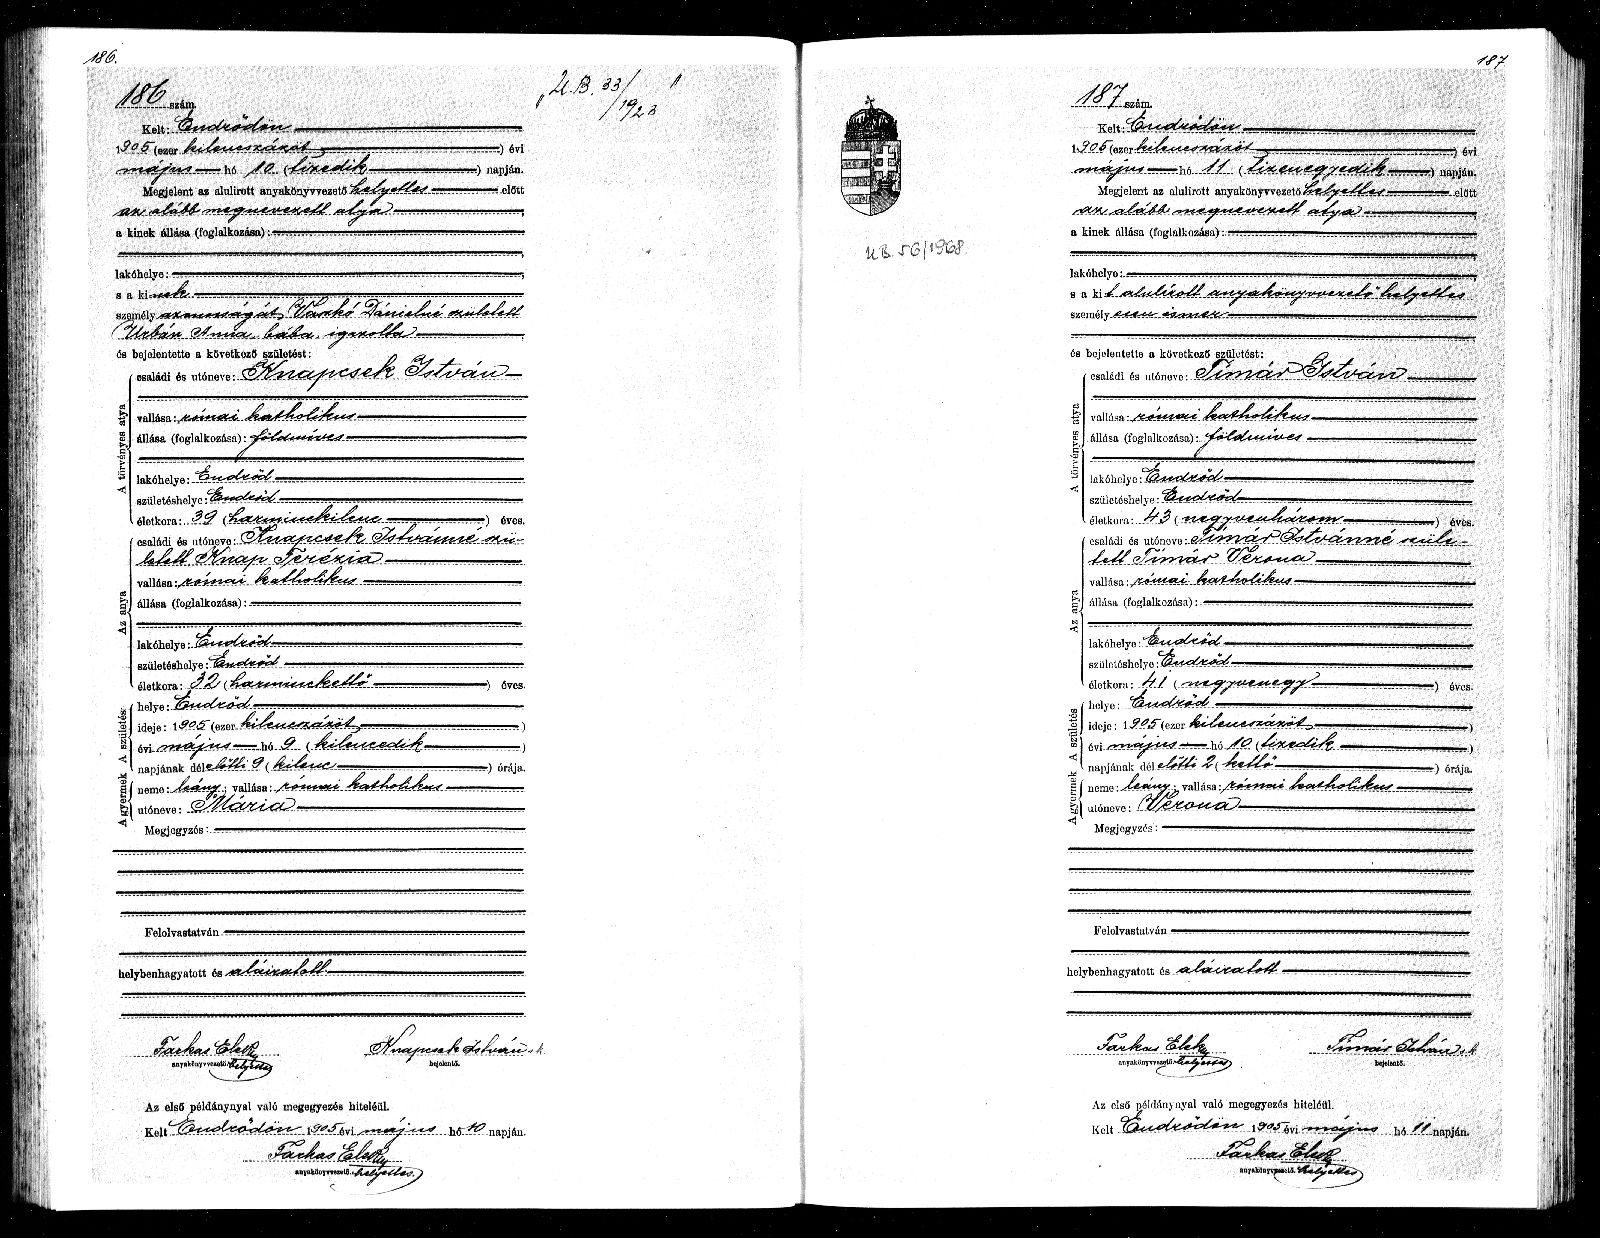 186.
186 szám.
"U.B. 33/1923"
Kelt: Endrődön
1905 (ezer kilencszázöt) évi
május hó 10 (tizedik) napján.
Megjelent az alulirott anyakönyvvezető helyettes előtt
az alább megnevezett atya
a kinek állása (foglalkozása):
lakóhelye:
s a kinek
személy azonosságát Vaszkó Dánielné született
Urbán Anna bába igazolta
és bejelentette a következő születést:
A törvényes atya
családi és utóneve: Knapcsek István
vallása: római katholikus
állása (foglalkozása): földmíves
lakóhelye: Endrőd
születéshelye: Endrőd
életkora: 39 (harminckilenc) éves.
Az anya
családi és utóneve: Knapcsek Istvánné szü-
letett Knap Terézia
vallása: római katholikus
állása (foglalkozása):
lakóhelye: Endrőd
születéshelye: Endrőd
életkora: 32 (harminckettő) éves.
A születés
helye: Endrőd
ideje: 1905 (ezer kilencszázöt)
évi május hó 9 (kilencedik)
napjának délelőtti 9 (kilenc) órája.
A gyermek
neme: leány; vallása: római katholikus
utóneve: Mária
Megjegyzés:
Felolvastatván
helybenhagyatott és aláiratott
Farkas Elek
anyakönyvvezető helyettes
Knapcsek István s.k.
bejelentő.
Az első példánynyal való megegyezés hiteléül.
Kelt Endrődön 1905 évi május hó 10 napján.
Farkas Elek
anyakönyvvezető. helyettes.
187
187 szám.
U.B. 56/1968.
Kelt: Endrődön
1905 (ezer kilencszázöt) évi
május hó 11 (tizenegyedik) napján.
Megjelent az alulirott anyakönyvvezető helyettes előtt
az alább megnevezett atya
a kinek állása (foglalkozása):
lakóhelye:
s a kit alulirott anyakönyvvezető helyettes
személyesen ismer
és bejelentette a következő születést:
A törvényes atya
családi és utóneve: Tímár István
vallása: római katholikus
állása (foglalkozása): földmíves
lakóhelye: Endrőd
születéshelye: Endrőd
életkora: 43 (negyvenhárom) éves.
Az anya
családi és utóneve: Tímár Istvánné szüle-
tett Tímár Verona
vallása: római katholikus
állása (foglalkozása):
lakóhelye: Endrőd
születéshelye: Endrőd
életkora: 41 (negyvenegy) éves.
A születés
helye: Endrőd
ideje: 1905 (ezer kilencszázöt)
évi május hó 10 (tizedik)
napjának délelőtti 2 (kettő) órája.
A gyermek
neme: leány; vallása: római katholikus
utóneve: Verona
Megjegyzés:
Felolvastatván
helybenhagyatott és aláiratott
Farkas Elek
anyakönyvvezető helyettes
Tímár István s.k.
bejelentő.
Az első példánynyal való megegyezés hiteléül.
Kelt Endrődön 1905 évi május hó 11 napján.
Farkas Elek
anyakönyvvezető. helyettes